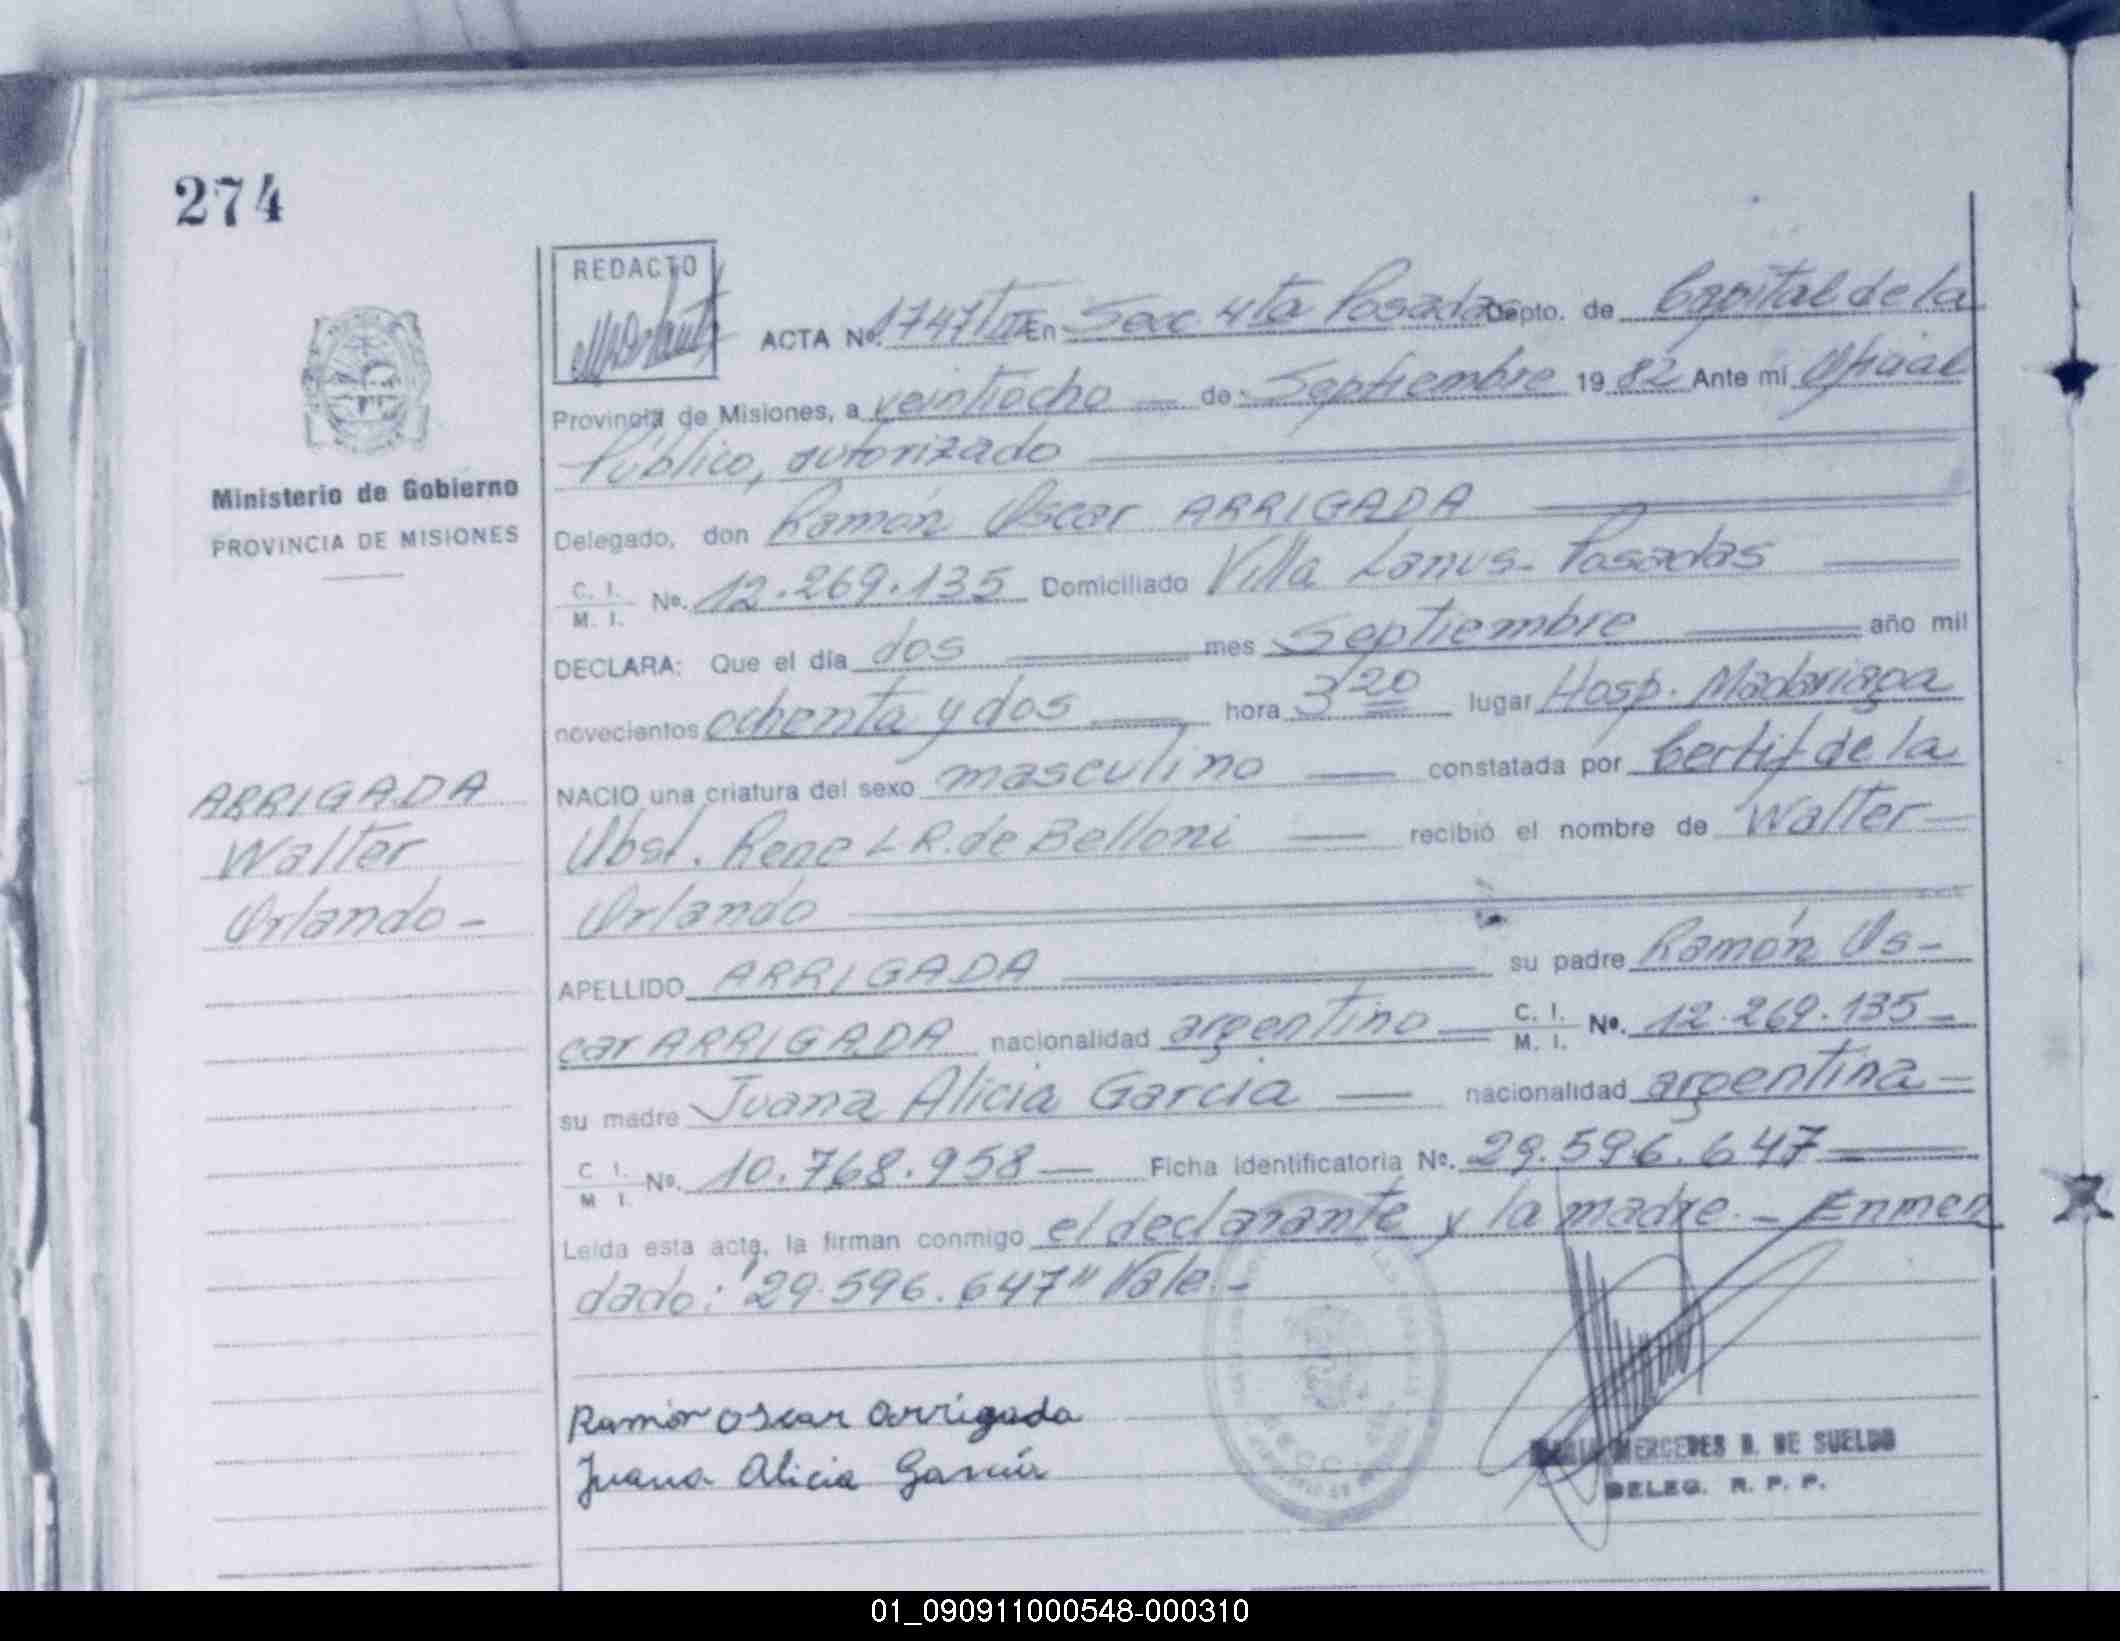 274
REDACTO
ACTA Nº. 1747 En Secc 4ta Posadas Depto. de Capital de la
Provincia de Misiones, a veintiocho de Septiembre 1982 Ante mi Oficial
Público, autorizado
Ministerio de Gobierno
PROVINCIA DE MISIONES
Delegado, don Ramón Oscar ARRIGADA
C. I.
M. I. Nº. 12.269.135 Domiciliado Villa Lanus - Posadas
DECLARA: Que el día dos mes Septiembre año mil
novecientos ochenta y dos hora 3 20 lugar Hosp. Madariaga
ARRIGADA
Walter
Orlando -
NACIO una criatura del sexo masculino constatada por Certif de la
Obst. Rene L R. de Belloni recibió el nombre de Walter
Orlando
APELLIDO ARRIGADA su padre Ramón Os-
car ARRIGADA nacionalidad argentino C. I.
M. I. Nº. 12.269.135 -
su madre Juana Alicia Garcia nacionalidad argentina -
C. I.
M. I. Nº. 10.768.958 Ficha identificatoria Nº. 29.596.647
Leída esta acta, la firman conmigo el declarante y la madre. - Enmen
dado: "29.596.647" Vale. -
Ramón Oscar Arrigada
Juana Alicia García
MERCEDES B. DE SUELDO
DELEG. R. P. P.
01_090911000548-000310